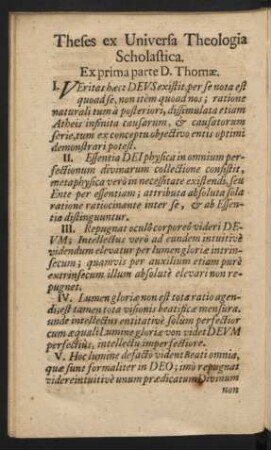 Theses ex Universa Theologia
Scholastica.
Ex prima parte D. Thomæ.
I. VEritas hæc: DEUS existit, per se nota est
quoad se, non item quoad nos; ratione
naturali tum à posteriori, dissimulata etiam
Atheis infinita causarum, & causatorum
serie, tum ex conceptu objectivo entis optimi
demonstrari potest.
II. Essentia DEI physica in omnium per-
fectionum divinarum collectione consistit,
metaphysica verò in necessitate existendi, seu
Ente per essentiam; attributa absoluta sola
ratione ratiocinante inter se, & ab Essen-
tia distinguuntur.
III. Repugnat oculô corporeô videri DE-
UM; Intellectus verò ad eundem intuitivè
videndum elevatur per lumen gloriæ intrin-
secum; quamvis per auxilium etiam purè
extrinsecum illum absolutè elevari non re-
pugnet.
IV. Lumen gloriæ non est tota ratio agen-
di; est tamen tota visionis beatificæ mensura,
unde intellectus entitativè solùm perfectior
cum æquali Lumine gloriæ non videt DEUM
perfectiùs, intellectu imperfectiore.
V. Hoc lumine de facto vident Beati omnia,
quæ sunt formaliter in DEO; imò repugnat
videre intuitivè unum prædicatum Divinum
non